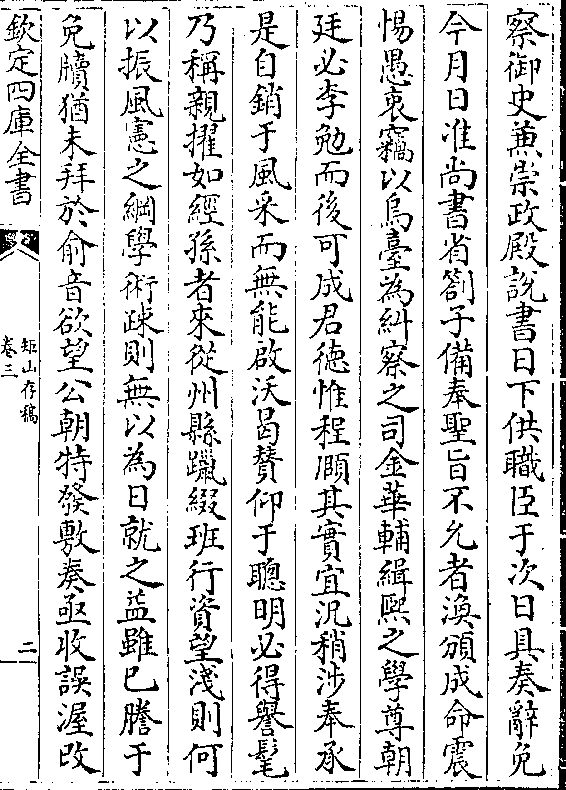 察御史兼崇政殿說書日下供職臣于次日具奏辭免
今月日准尚書省劄子備奉聖旨不允者渙頒成命震
惕愚衷竊以烏臺為糾察之司金華輔緝熙之學尊朝
廷必李勉而後可成君徳惟程頤其實宜況稍涉奉承
是自銷于風采而無能啟沃曷賛仰于聰明必得譽髦
乃稱親擢如經孫者來從州縣躐綴班行資望淺則何
以振風憲之綱學術踈則無以為日就之益雖已謄于
免牘猶未拜於俞音欲望公朝特發敷奏亟收誤渥改
欽定四庫全書
矩山存稿
卷三
二